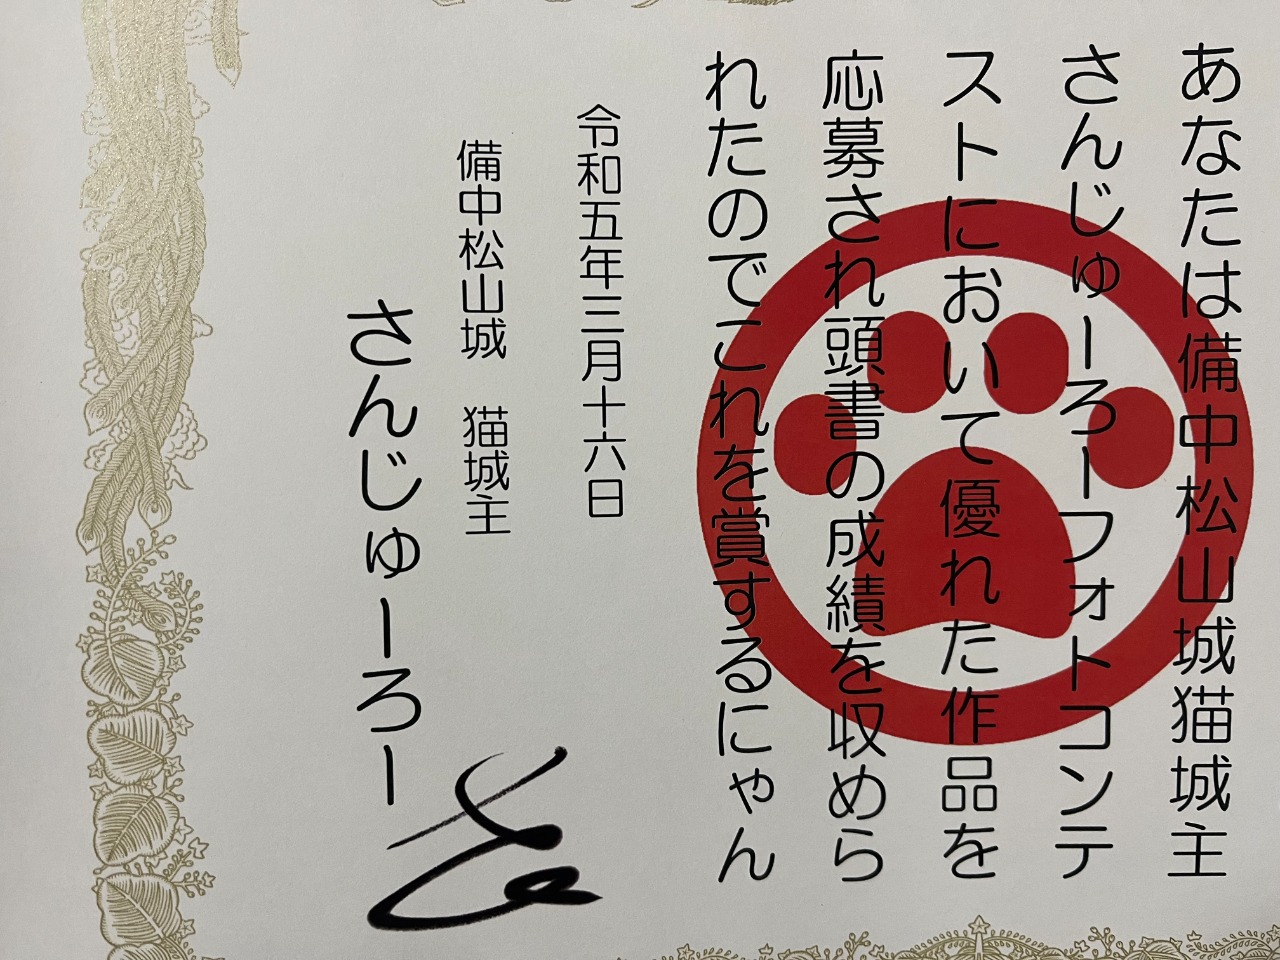 あなたは備中松山城猫城主
さんじゅーろーフォトコンテ
ストにおいて優れた作品を
応募され頭書の成績を収めら
れたのでこれを賞するにゃん
令和五年三月十六日
備中松山城 猫城主
さんじゅーろー